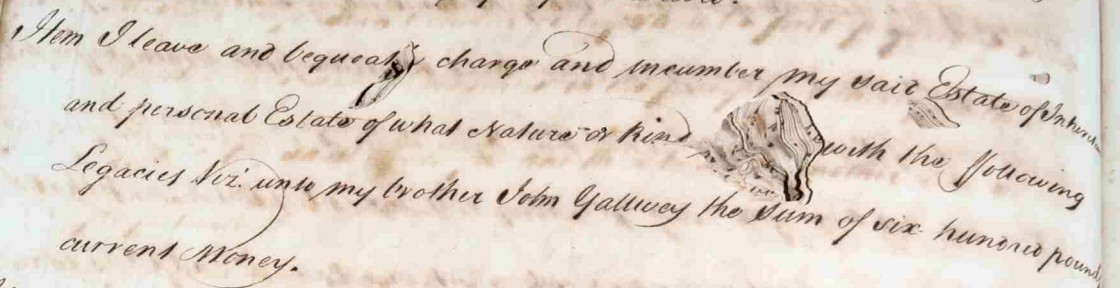 Item I leave and bequeath charge and incumber my said Estate of
and personal Estate of what Nature or Kind with the ffollowing
Legacies Viz. unto my brother John Gallwey the Sum of six hundred pounds
current Money.